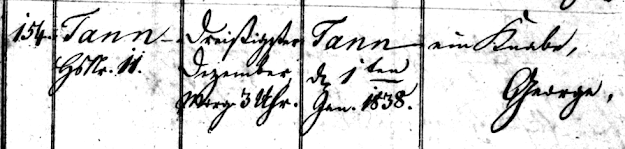 154. Tann Dreißigster Tann ein Knabe,
HsNr. 11. Dezember, d. 1ten George,
Morg. 3 Uhr. Jan. 1838.